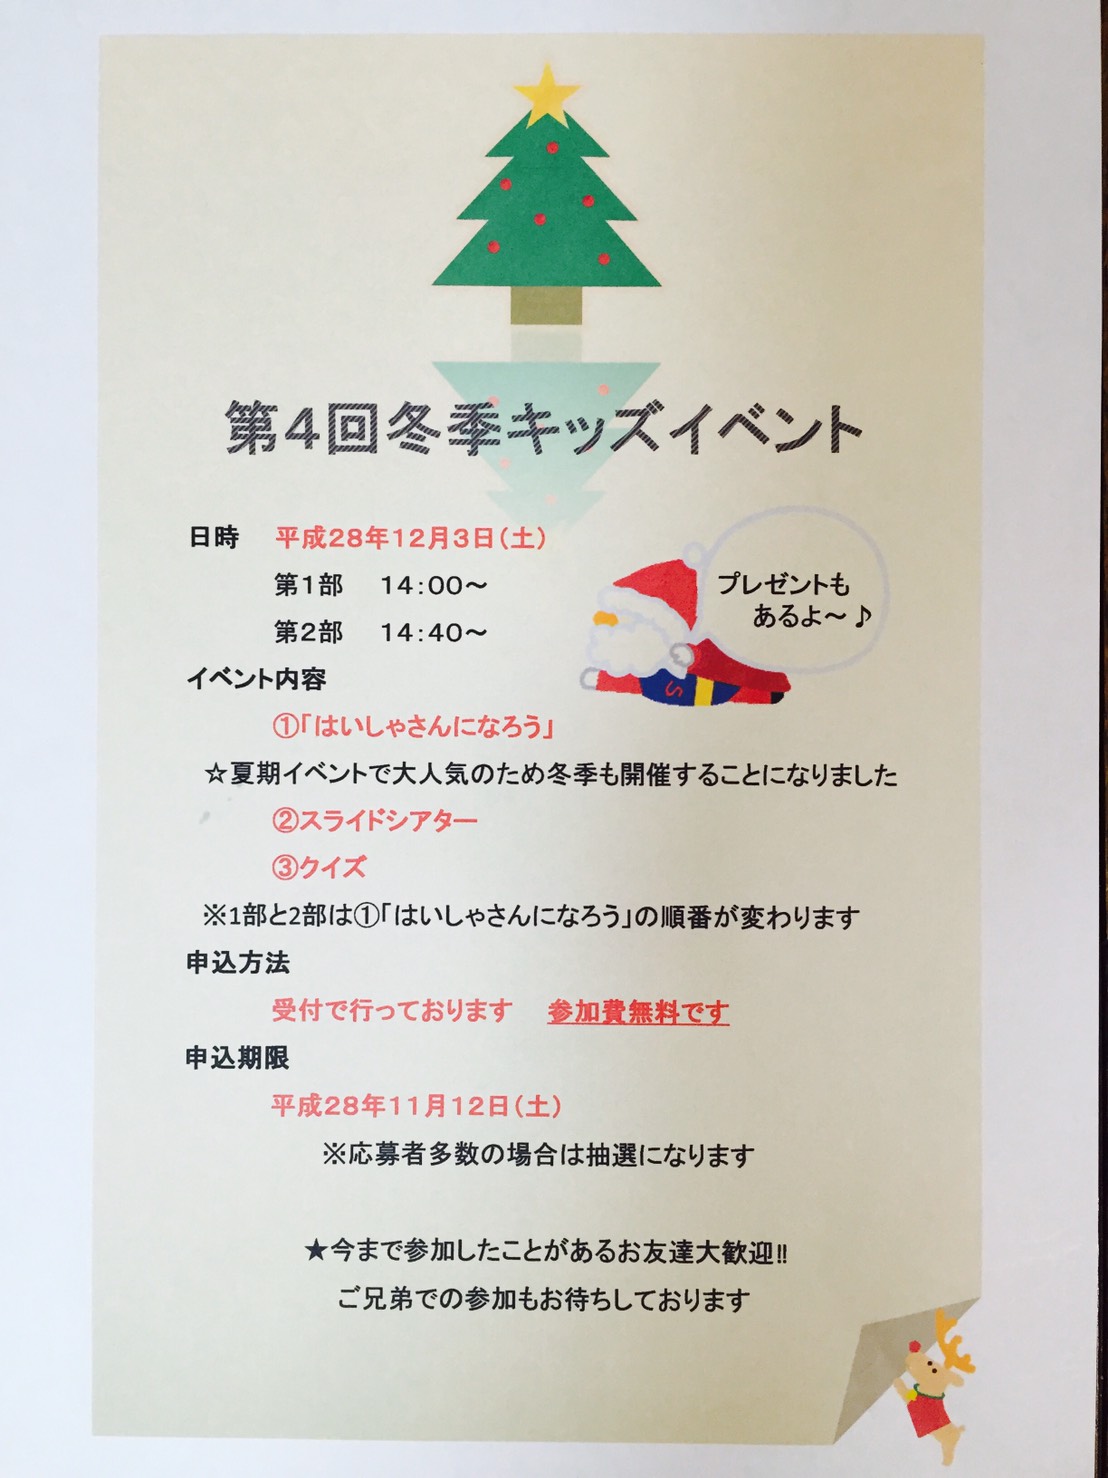 第4回冬季キッズイベント
日時 平成28年12月3日(土)
第1部 14:00～
第2部 14:40～
プレゼントも
あるよ～♪
S
イベント内容
①「はいしゃさんになろう」
☆夏期イベントで大人気のため冬季も開催することになりました
②スライドシアター
③クイズ
※1部と2部は①「はいしゃさんになろう」の順番が変わります
申込方法
受付で行っております 参加費無料です
申込期限
平成28年11月12日(土)
※応募者多数の場合は抽選になります
★今まで参加したことがあるお友達大歓迎!!
ご兄弟での参加もお待ちしております